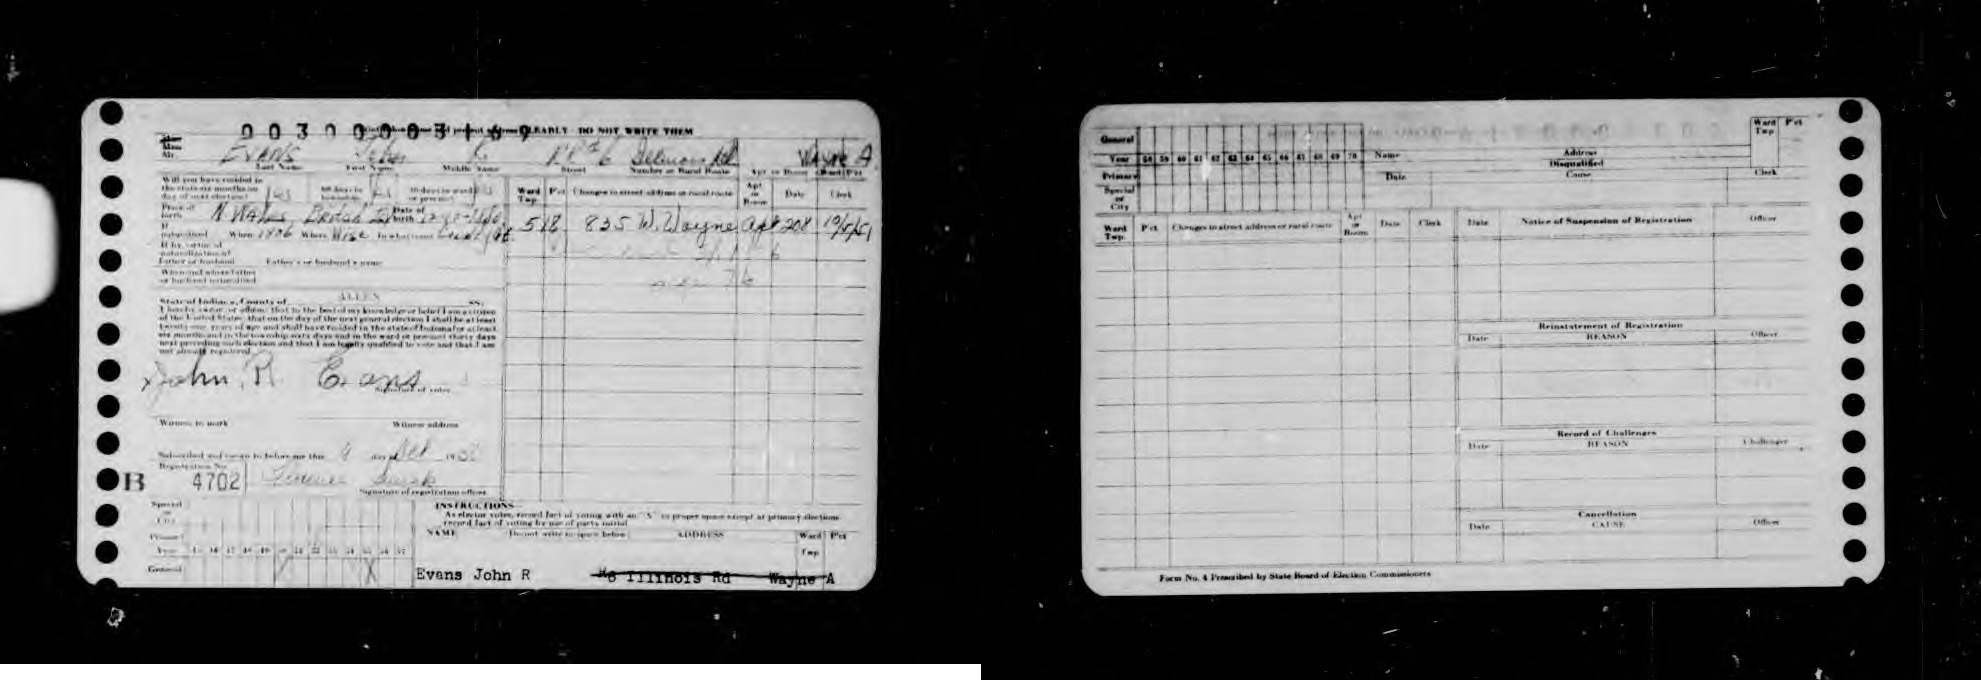 0030003169
CLEARLY - DO NOT WRITE THEM
Mr. EVANS John R. RR#6 Illinois Rd Wayne A
Last Name First Name Middle Name Street Number or Rural Route Apt or Room Ward Pct
Will you have resided in
the state six months on
day of next election?
60 days in
township
30 days in ward
or precinct
Ward Twp. Pct Changes in street address or rural route Apt or Room Date Clerk
518 835 W. Wayne Apt 208
Place of birth N Wales
Date of birth
If naturalized When 1906 Where In what court
If by virtue of
naturalization of
Father or husband Father's or husband's name
When and where father
or husband naturalized
State of Indiana, County of ALLEN SS:
I hereby swear or affirm that to the best of my knowledge or belief I am a citizen
of the United States, that on the day of the next general election I shall be at least
twenty-one years of age and shall have resided in the state of Indiana for at least
six months and in the township sixty days and in the ward or precinct thirty days
next preceding such election and that I am legally qualified to vote and that I am
not already registered.
John. R. Evans
Signature of voter
Witness to mark Witness address
Subscribed and sworn to before me this day 19
Registration No.
B 4702
Signature of registration officer
Special
or
City
Primary
Year 45 46 47 48 49 50 51 52 53 54 55 56 57
General X
INSTRUCTIONS
As elector votes, record fact of voting with an "X" in proper space except at primary elections
record fact of voting by use of party initial
NAME Do not write in space below ADDRESS Ward Twp Pct
Evans John R #6 Illinois Rd Wayne A
General
Year 58 59 60 61 62 63 64 65 66 67 68 69 70
Primary
Special
or
City
Name Address Ward Twp Pct
Disqualified
Date Cause Clerk
Ward Twp. Pct Changes in street address or rural route Apt or Room Date Clerk
Date Notice of Suspension of Registration Officer
Reinstatement of Registration
Date REASON Officer
Record of Challenges
Date REASON Challenger
Cancellation
Date CAUSE Officer
Form No. 4 Prescribed by State Board of Election Commissioners